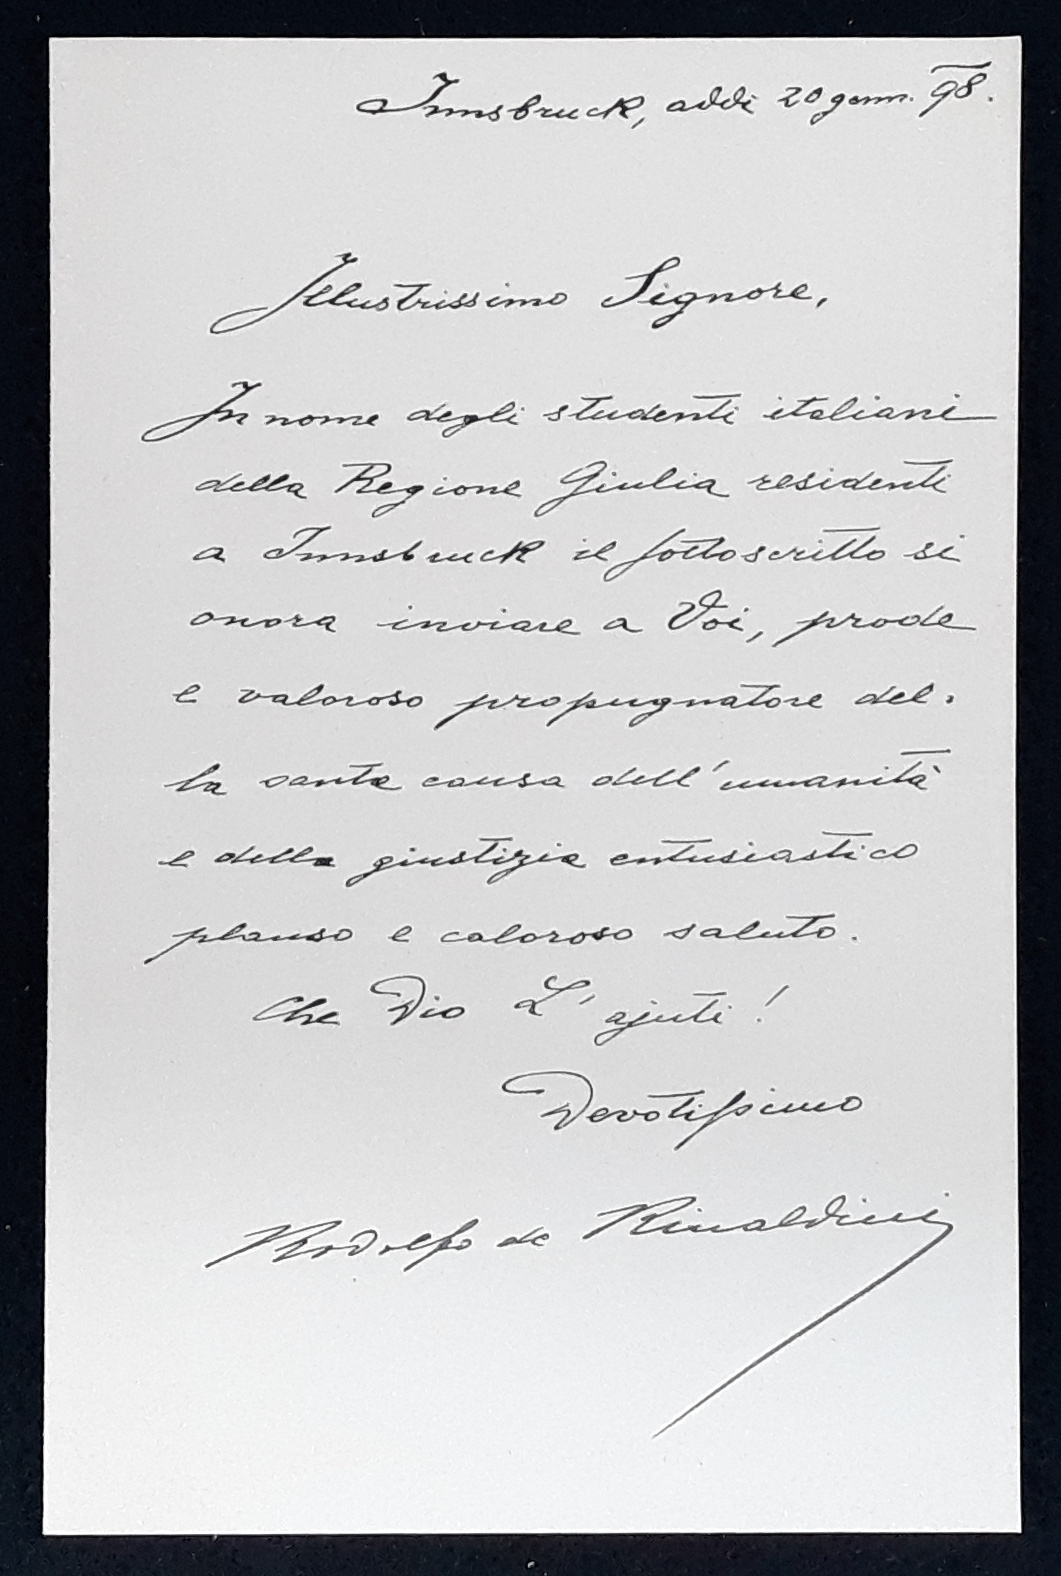 Innsbruck, addì 20 genn. 98.
Illustrissimo Signore,
In nome degli studenti italiani
della Regione Giulia residenti
a Innsbruck il sottoscritto si
onora inviare a Voi, prode
e valoroso propugnatore del-
la santa causa dell'umanità
e della giustizia entusiastico
plauso e caloroso saluto.
Che Dio L'ajuti!
Devotissimo
Rodolfo de Rinaldini